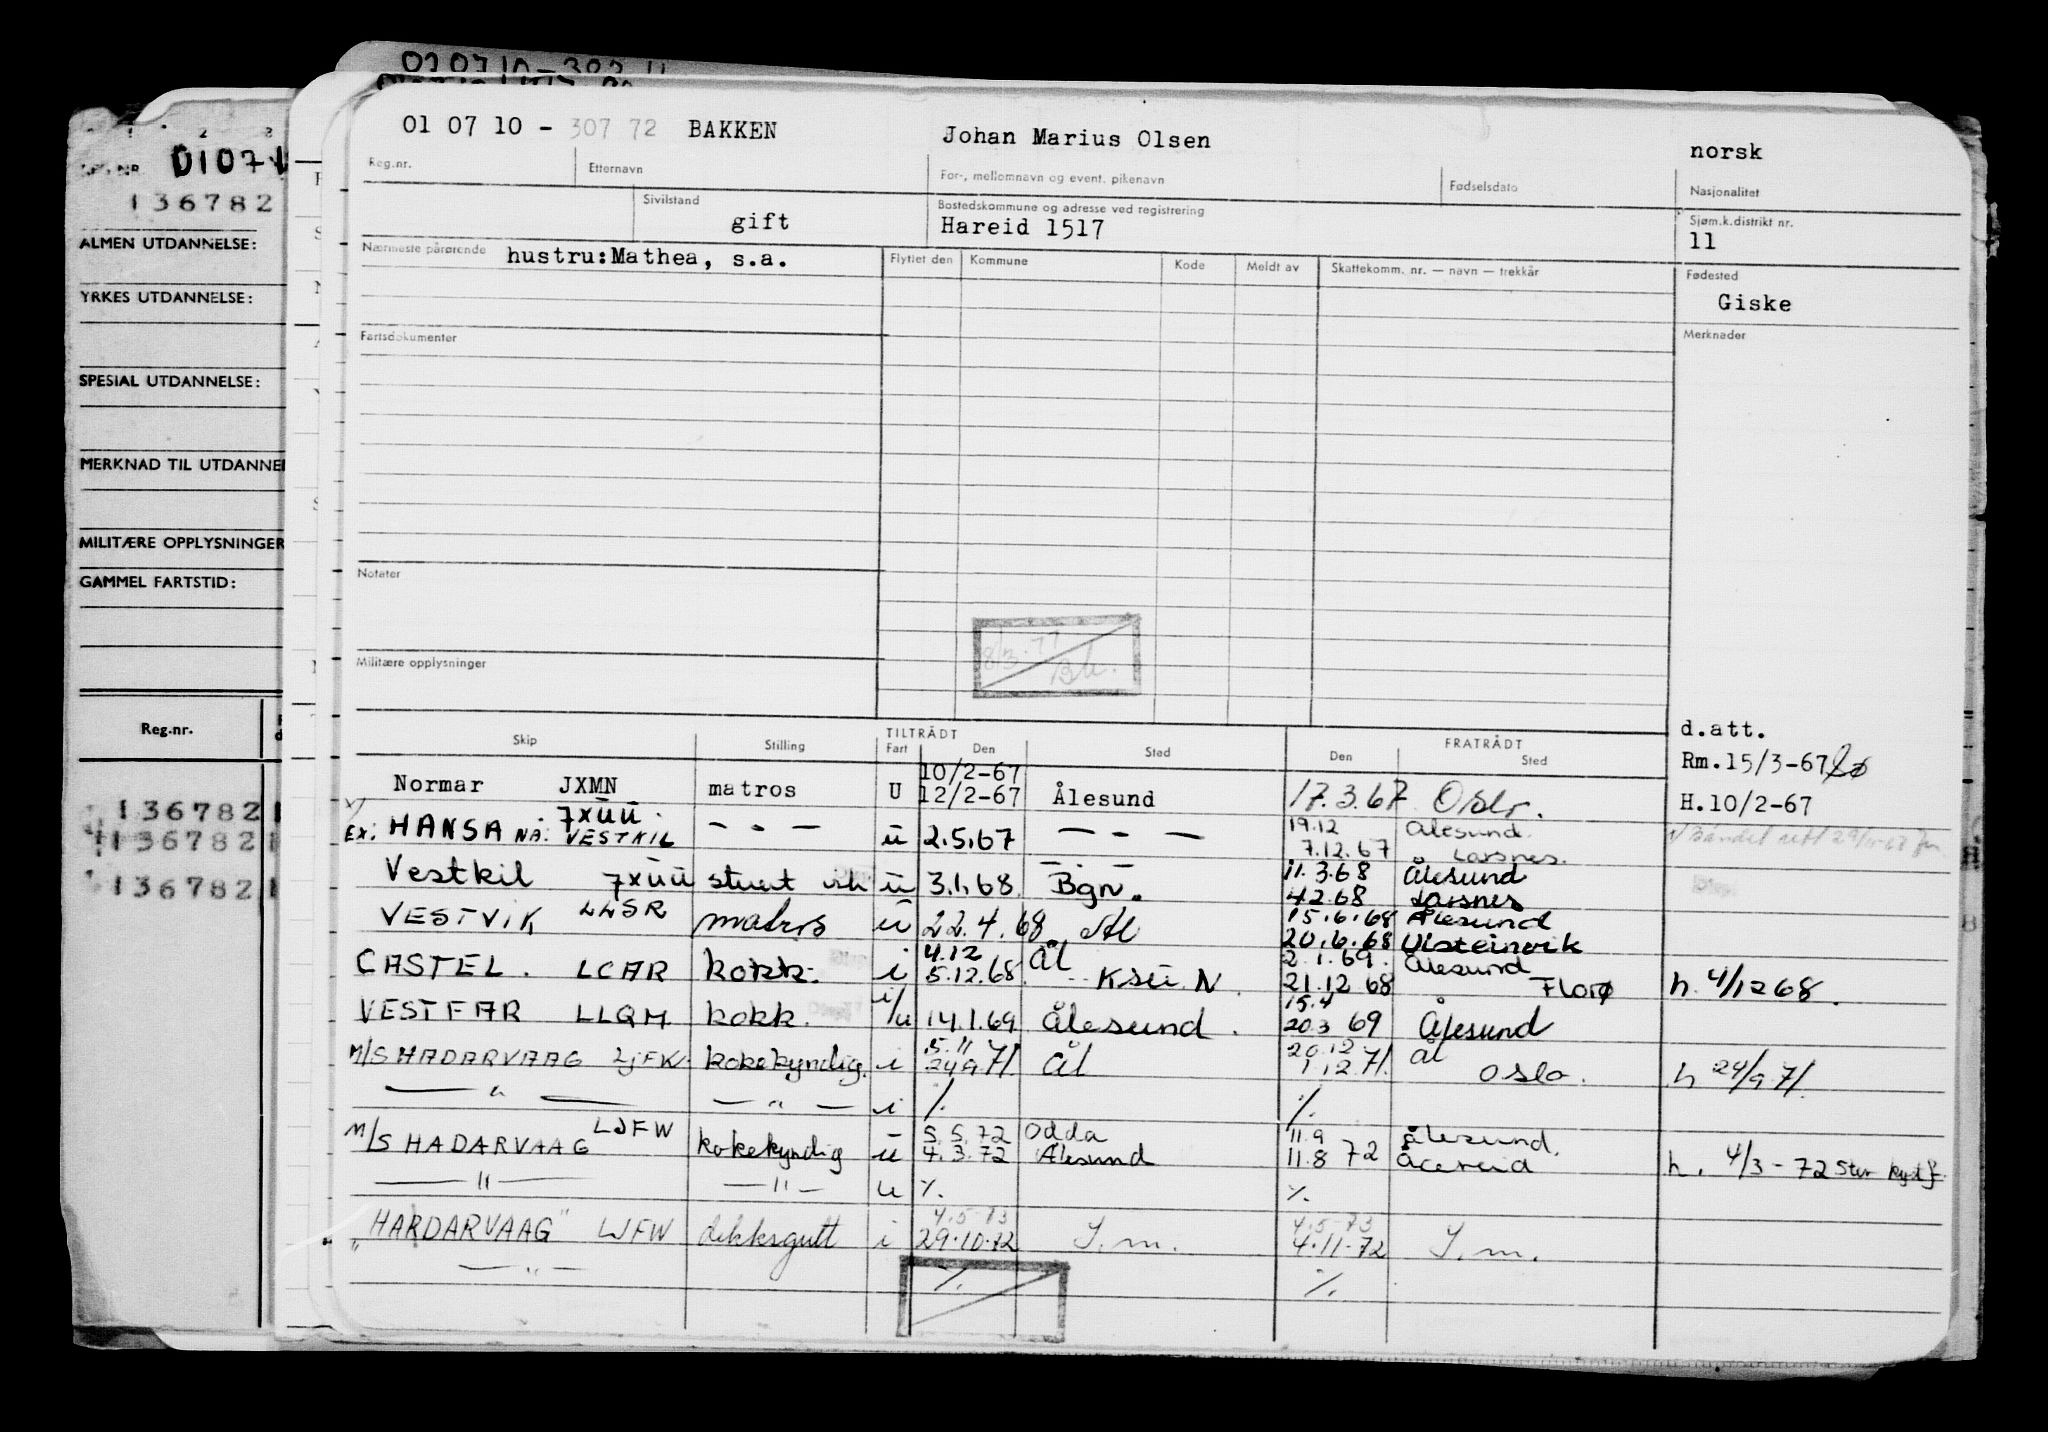 070710-302
1 2 3
REG.NR. 01071
136782
ALMEN UTDANNELSE:
YRKES UTDANNELSE:
SPESIAL UTDANNELSE:
MERKNAD TIL UTDANNE
MILITÆRE OPPLYSNINGER
GAMMEL FARTSTID:
Reg.nr.
136782
136782
136782
01 07 10 - 307 72 BAKKEN Johan Marius Olsen norsk
Reg.nr. Etternavn For-, mellomnavn og event. pikenavn Fødselsdato Nasjonalitet
Sivilstand Bostedskommune og adresse ved registrering Sjøm.k.distrikt nr.
gift Hareid 1517 11
Nærmeste pårørende hustru:Mathea, s.a. Flyttet den Kommune Kode Meldt av Skattekomm. nr. — navn — trekkår Fødested
Giske
Fartsdokumenter Merknader
Notater
8/3.77
Bk.
Militære opplysninger
TILTRÅDT FRATRÅDT d.att.
Skip Stilling Fart Den Sted Den Sted Rm.15/3-67
10/2-67
Normar JXMN matros U 12/2-67 Ålesund 17.3.67 Oslo. H.10/2-67
7XUU 19.12 Ålesund.
EX: HANSA NA: VESTKIL — " — u 2.5.67 — " — 7.12.67 Larsnes.
11.3.68 Ålesund
Vestkil 7XUU stuert u 3.1.68 Bgn. 4.2.68 Larsnes
15.6.68 Ålesund
VESTVIK LLSR matros u 22.4.68 Ål 20.6.68 Ulsteinvik
4.12 Ål 2.1.69. Ålesund
CASTEL. LCAR kokk. i 5.12.68 KSU.N. 21.12 68 Florø h. 4/12 68.
i/ 15.4
VESTFAR LLQM kokk. u 14.1.69 Ålesund. 20.3 69 Ålesund
5.11 20.12 Ål
M/S HADARVAAG LJFW kokekyndig. i 24.9.71. Ål 1.12.71. Oslo. h 24/9 71.
— " — — " — i %. %.
5.5.72 Odda 11.9 Ålesund.
M/S HADARVAAG LJFW kokekyndig u 4.3.72 Ålesund 11.8 72 h. 4/3-72
— " — — " — u %. %.
4.5-73 4.5-73
"HARDARVAAG" LJFW dekksgutt i 29.10.72 Y.m. 4.11-72 Y.m.
— " — %. %.